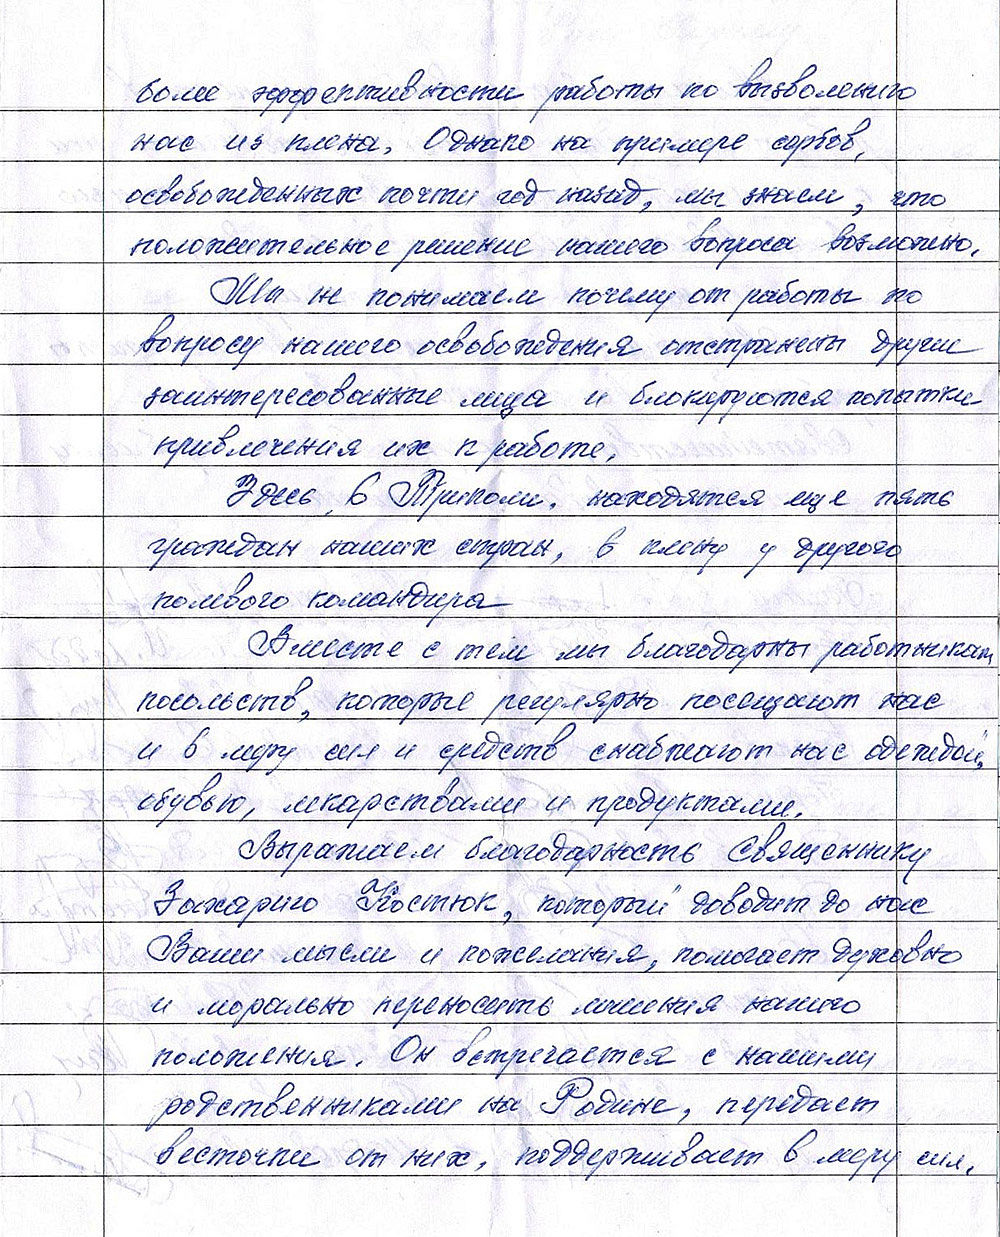 более эффективности работы по вызволению
нас из плена. Однако на примере сербов,
освобожденных почти год назад, мы знаем, что
положительное решение нашего вопроса возможно.
Мы не понимаем почему от работы по
вопросу нашего освобождения отстранены другие
заинтересованные лица и блокируются попытки
привлечения их к работе.
Здесь, в Триполи, находятся еще пять
граждан наших стран, в плену у другого
полевого командира
Вместе с тем мы благодарны работникам
посольств, которые регулярно посещают нас
и в меру сил и средств снабжают нас одеждой,
обувью, лекарствами и продуктами.
Выражаем благодарность Священнику
Захарию Костюк, который доводит до нас
Ваши мысли и пожелания, помогает духовно
и морально переносить лишения нашего
положения. Он встречается с нашими
родственниками на Родине, передает
весточки от них, поддерживает в меру сил.